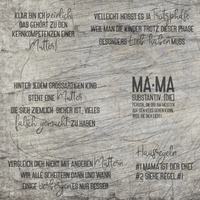 Klar bin ich peinlich
das gehört zu den
Kernkompetenzen einer
Mutter!
Vielleicht heisst es ja Trotzphase
weil man die Kinder trotz dieser Phase
besonders lieb haben muss
Hinter jedem grossartigen Kind
steht eine Mutter
die sich ziemlich sicher ist, vieles
falsch gemacht zu haben
MA·MA
SUBSTANTIV, [DIE]
Vergleich dich nicht mit anderen Müttern
wir alle scheitern dann und wann
einige verbergen es nur besser
Hausregeln
#1 Mama ist der Chef
#2 siehe Regel #1